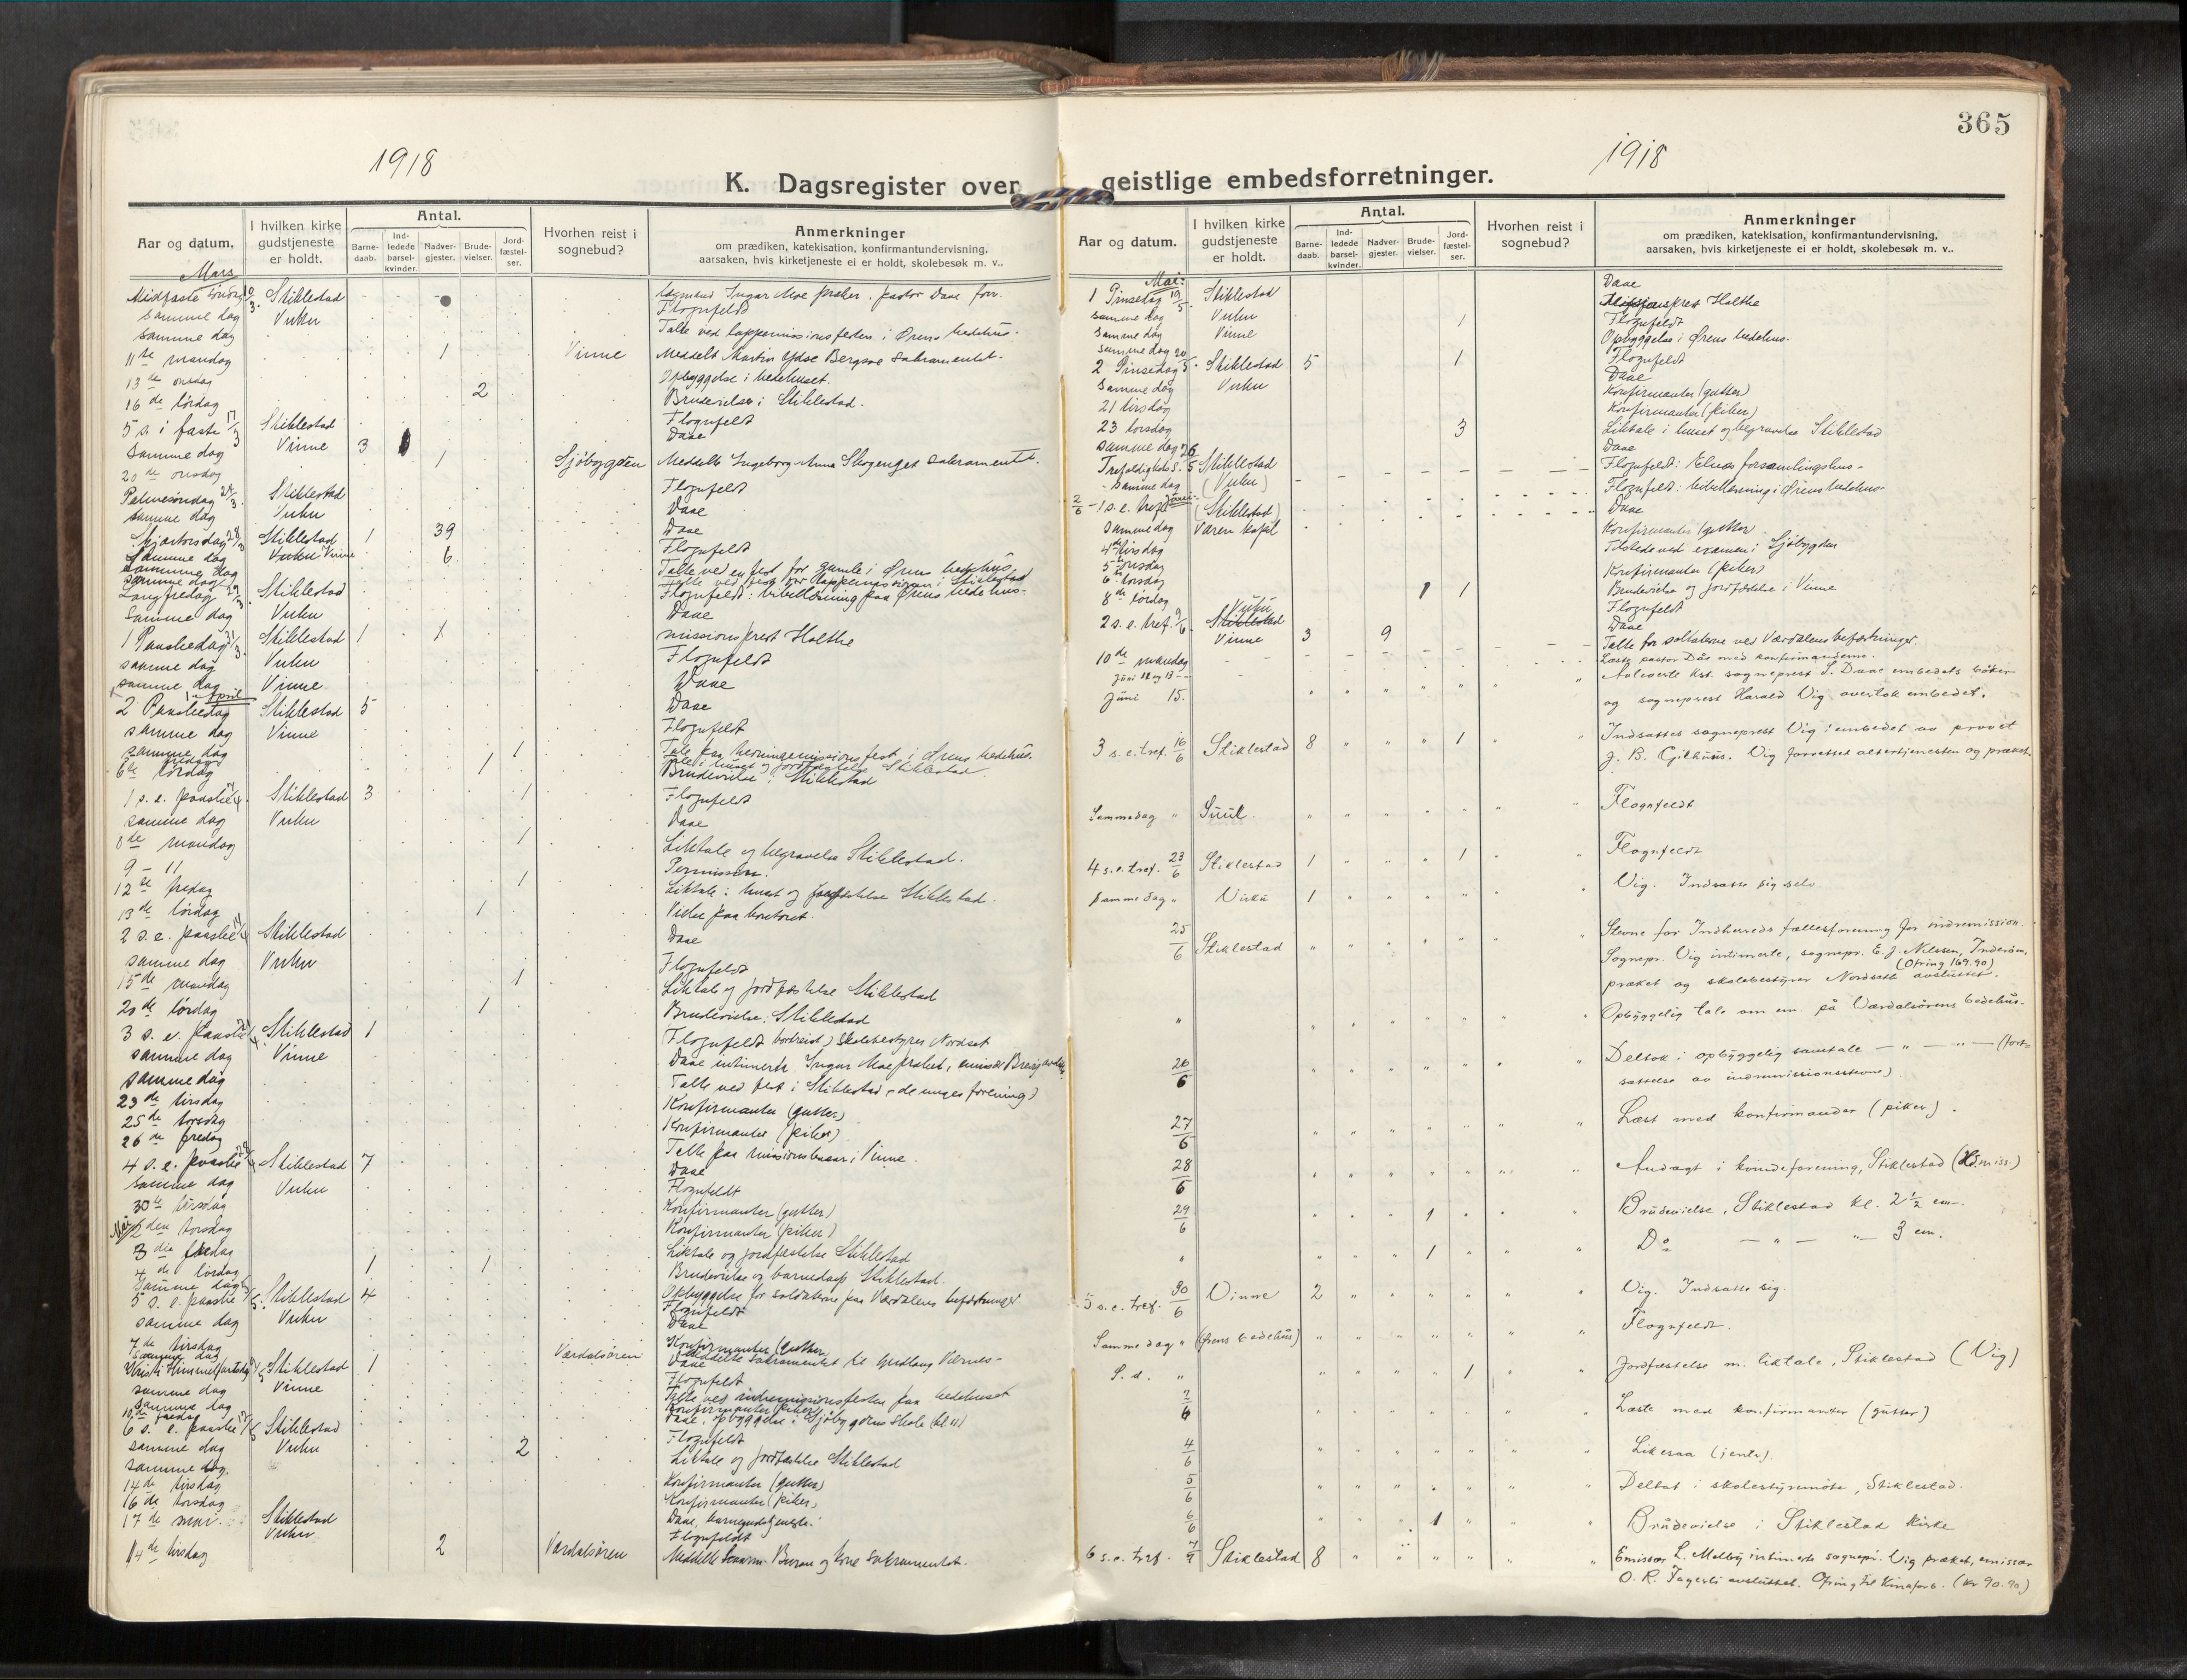 365
1918
1918
K. Dagsregister over geistlige embedsforretninger.
Aar og datum. I hvilken kirke gudstjeneste er holdt. Antal. Barnedaab. Indledede barselkvinder. Nadvergjester. Brudevielser. Jordfæstelser. Hvorhen reist i sognebud? Anmerkninger om prædiken, katekisation, konfirmantundervisning, aarsaken, hvis kirketjeneste ei er holdt, skolebesøk m. v..
Mars
Midfaste søndag 10/3. Stiklestad Ingar Moe præker. pastor Daae forr.
samme dag Vuku Flognfeldt
samme dag Talte ved lappemissionsfesten i Ørens bedehus.
11te mandag 1 Vinne Meddelt Martin Bergsve sakramentet.
13de onsdag Opbyggelse i bedehuset.
16de lördag 2 Brudevielse i Stiklestad.
5 s. i faste 17/3 Stiklestad Flognfeldt
samme dag Vinne 3 Daae
20de onsdag 1 Sjöbygden Meddelt Ingeborg Anna sakramentet.
Palmesöndag 24/3. Stiklestad Flognfeldt
samme dag Vuku Daae
Skjærtorsdag 28/3 Stiklestad 1 39 Daae
samme dag Vinne 6 Flognfeldt
samme dag Talte ved en fest for gamle i Ørens bedehus
samme dag Talte ved fest for lappemissionen i Stiklestad
Langfredag 29/3 Stiklestad Flognfeldt: bibellæsning paa Ørens bedehus.
samme dag Vuku Daae
1 Paaskedag 31/3. Stiklestad 1 missionsprest Holthe
samme dag Vuku Flognfeldt
samme dag Vinne Daae
April
2 Paaskedag Stiklestad 5 Daae
samme dag Vinne Flognfeldt
samme dag Tale paa hedningemissionsfest i Ørens bedehus.
fredag 1 Tale i huset og jordfæstelse Stiklestad
6te lördag 1 Brudevielse i Stiklestad
1 s. e. paaske Stiklestad 3 1 Flognfeldt
samme dag Vuku Daae
8de mandag 1 Liktale og begravelse Stiklestad.
9 - 11 Permission.
12te fredag 1 Liktale i huset og jordfæstelse Stiklestad.
13de lördag 1 Vielse paa kontoret.
2 s. e. paaske Stiklestad Daae
samme dag Vuku Flognfeldt
15de mandag 1 Liktale og jordfæstelse Stiklestad
20de lördag 1 Brudevielse. Stiklestad
3 s. e. paaske Stiklestad 1 Flognfeldt bortreist) skolebestyrer Nordset
samme dag Vinne Daae intimerte Ingar Moe præket, emissær
samme dag Talte ved fest i Stiklestad (de unges forening)
23de tirsdag Konfirmanter (gutter)
25de torsdag Konfirmanter (piker)
26de fredag Talte paa missionsbasar i Vinne
4 s. e. paaske Stiklestad 7 Daae
samme dag Vuku Flognfeldt
30te tirsdag Konfirmanter (gutter)
Mai 2den torsdag Konfirmanter (piker)
3die fredag Liktale og jordfæstelse Stiklestad
4de lördag 1 1 Brudevielse og barnedaap Stiklestad.
samme dag Opbyggelse for soldaterne paa Værdalens befæstninger
5 s. e. paaske Stiklestad 4 Flognfeldt
samme dag Vuku Daae
7de tirsdag Konfirmanter (gutter)
samme dag Værdalsören Meddelte sakramentet til Værnes.
Kristi Himmelfartsdag Stiklestad 1 Daae
samme dag Vinne Flognfeldt
samme dag Talte ved indremissionsfesten paa bedehuset
10de fredag Konfirmanter (piker)
6 s. e. paaske Stiklestad Daae, opbyggelse i Sjöbygdens skole (kl. 11)
samme dag Vuku Flognfeldt
samme dag. 2 Liktale og jordfæstelse Stiklestad
14de tirsdag Konfirmanter (gutter)
16de torsdag Konfirmanter (piker)
17de mai. Stiklestad Daae, barnegudstjeneste.
Vuku Flognfeldt
14de tirsdag 2 Værdalsören Meddelte sakramentet.
Aar og datum. I hvilken kirke gudstjeneste er holdt. Antal. Barnedaab. Indledede barselkvinder. Nadvergjester. Brudevielser. Jordfæstelser. Hvorhen reist i sognebud? Anmerkninger om prædiken, katekisation, konfirmantundervisning, aarsaken, hvis kirketjeneste ei er holdt, skolebesøk m. v..
Mai:
1 Pinsedag 19/5 Stiklestad Daae
samme dag Vuku 1 Missionsprest Holthe
samme dag Vinne Flognfeldt
samme dag Opbyggelse i Ørens bedehus.
2 Pinsedag 20/5. Stiklestad 5 1 Flognfeldt
samme dag Vuku Daae
21 tirsdag Konfirmanter (gutter)
23 torsdag Konfirmanter (piker)
samme dag 3 Liktale i huset og begravelse Stiklestad
Trefoldigheds. 26/5 Stiklestad Daae
samme dag (Vuku) Flognfeldt: Elnes forsamlingshus.
Juni
2/6 1 s. e. tref. (Stiklestad) Flognfeldt: bibellæsning i Ørens bedehus.
samme dag Væren kapel Daae
4de tirsdag Konfirmanter (gutter)
5te onsdag Tilstede ved examen i Sjöbygden
6te torsdag Konfirmanter (piker)
8de lördag 1 1 Brudevielse og jordfæstelse i Vinne
2 s. e. tref. 9/6. Stiklestad Vuku Flognfeldt
Vinne 3 9 Daae
10de mandag Talte for soldaterne ved Værdalens befæstninger.
Juni 12 og 13 Læste pastor Dås med konfirmanderne.
Juni 15. Avleverte kst. sogneprest S. Daae embedets bøker
og sogneprest Harald Vig overtok embedet.
3 s. e. tref. 16/6 Stiklestad 8 1 Indsattes sogneprest Vig i embedet av provst
J. B. Gilhuus. Vig forrettet altertjenesten og præket.
Samme dag " Suul. Flognfeldt
4 s. e. tref. 23/6 Stiklestad 1 1 Flognfeldt
Samme dag " Vuku 1 Vig. Indsatte sig selv
25/6 Stiklestad Stevne for Indherreds fællesforening for indremission.
Sognepr. Vig intimerte, sognepr. E. J. Nilssen, Inderøen,
(Ofring 169.90)
præket og skolebestyrer Nordseth avsluttet.
" Opbyggelig tale om em. på Værdalsörens bedehus.
26/6 Deltok i opbyggelig samtale — " — " — (fort-
sættelse av indremissionsstevne)
27/6 Læst med konfirmander (piker).
28/6 Andagt i kvindeforening, Stiklestad
29/6 1 Brudevielse, Stiklestad kl. 2 1/2 em.
" 1 Do — " — " — 3 em.
5 s. e. tref. 30/6 Vinne 2 Vig. Indsatte sig.
Samme dag " (Ørens bedehus) Flognfeldt.
S. d. " 1 Jordfæstelse m. liktale, Stiklestad (Vig)
2/6 Læste med konfirmanter (gutter)
4/6 Likesaa (jenter).
5/6 Deltat i skolestyremöte, Stiklestad.
6/6 1 Brudevielse i Stiklestad Kirke
6 s. e. tref. 7/7 Stiklestad 8 Emissær L. Melby intimerte sognepr. Vig præket, emissær
O. R. Fagerli avsluttet. Ofring til Kinaforb. (kr 90.90)